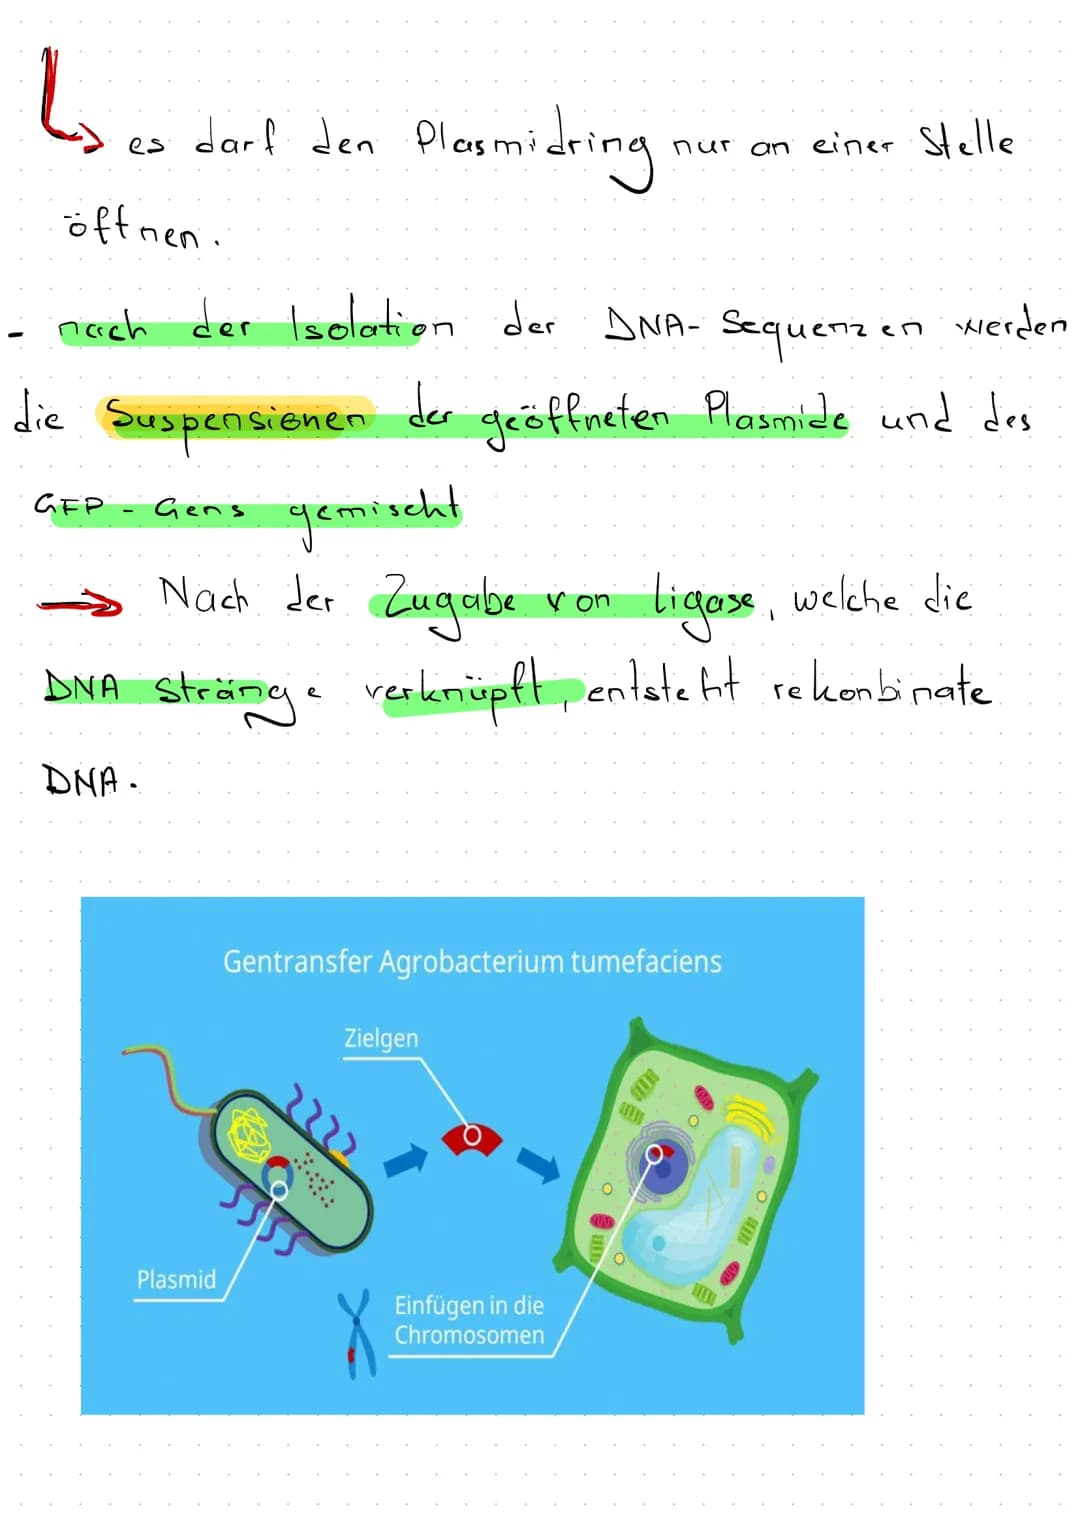 es darf den Plasmidring nur an einer Stelle
öffnen.
- nach der Isolation der DNA- Sequenzen werden
die Suspensionen der geöffneten Plasmide und des
GFP - Gens gemischt
→ Nach der Zugabe von Ligase, welche die
DNA Stränge verknüpft, entsteht rekonbinate
DNA.
Gentransfer Agrobacterium tumefaciens
Zielgen
Plasmid
Einfügen in die
Chromosomen